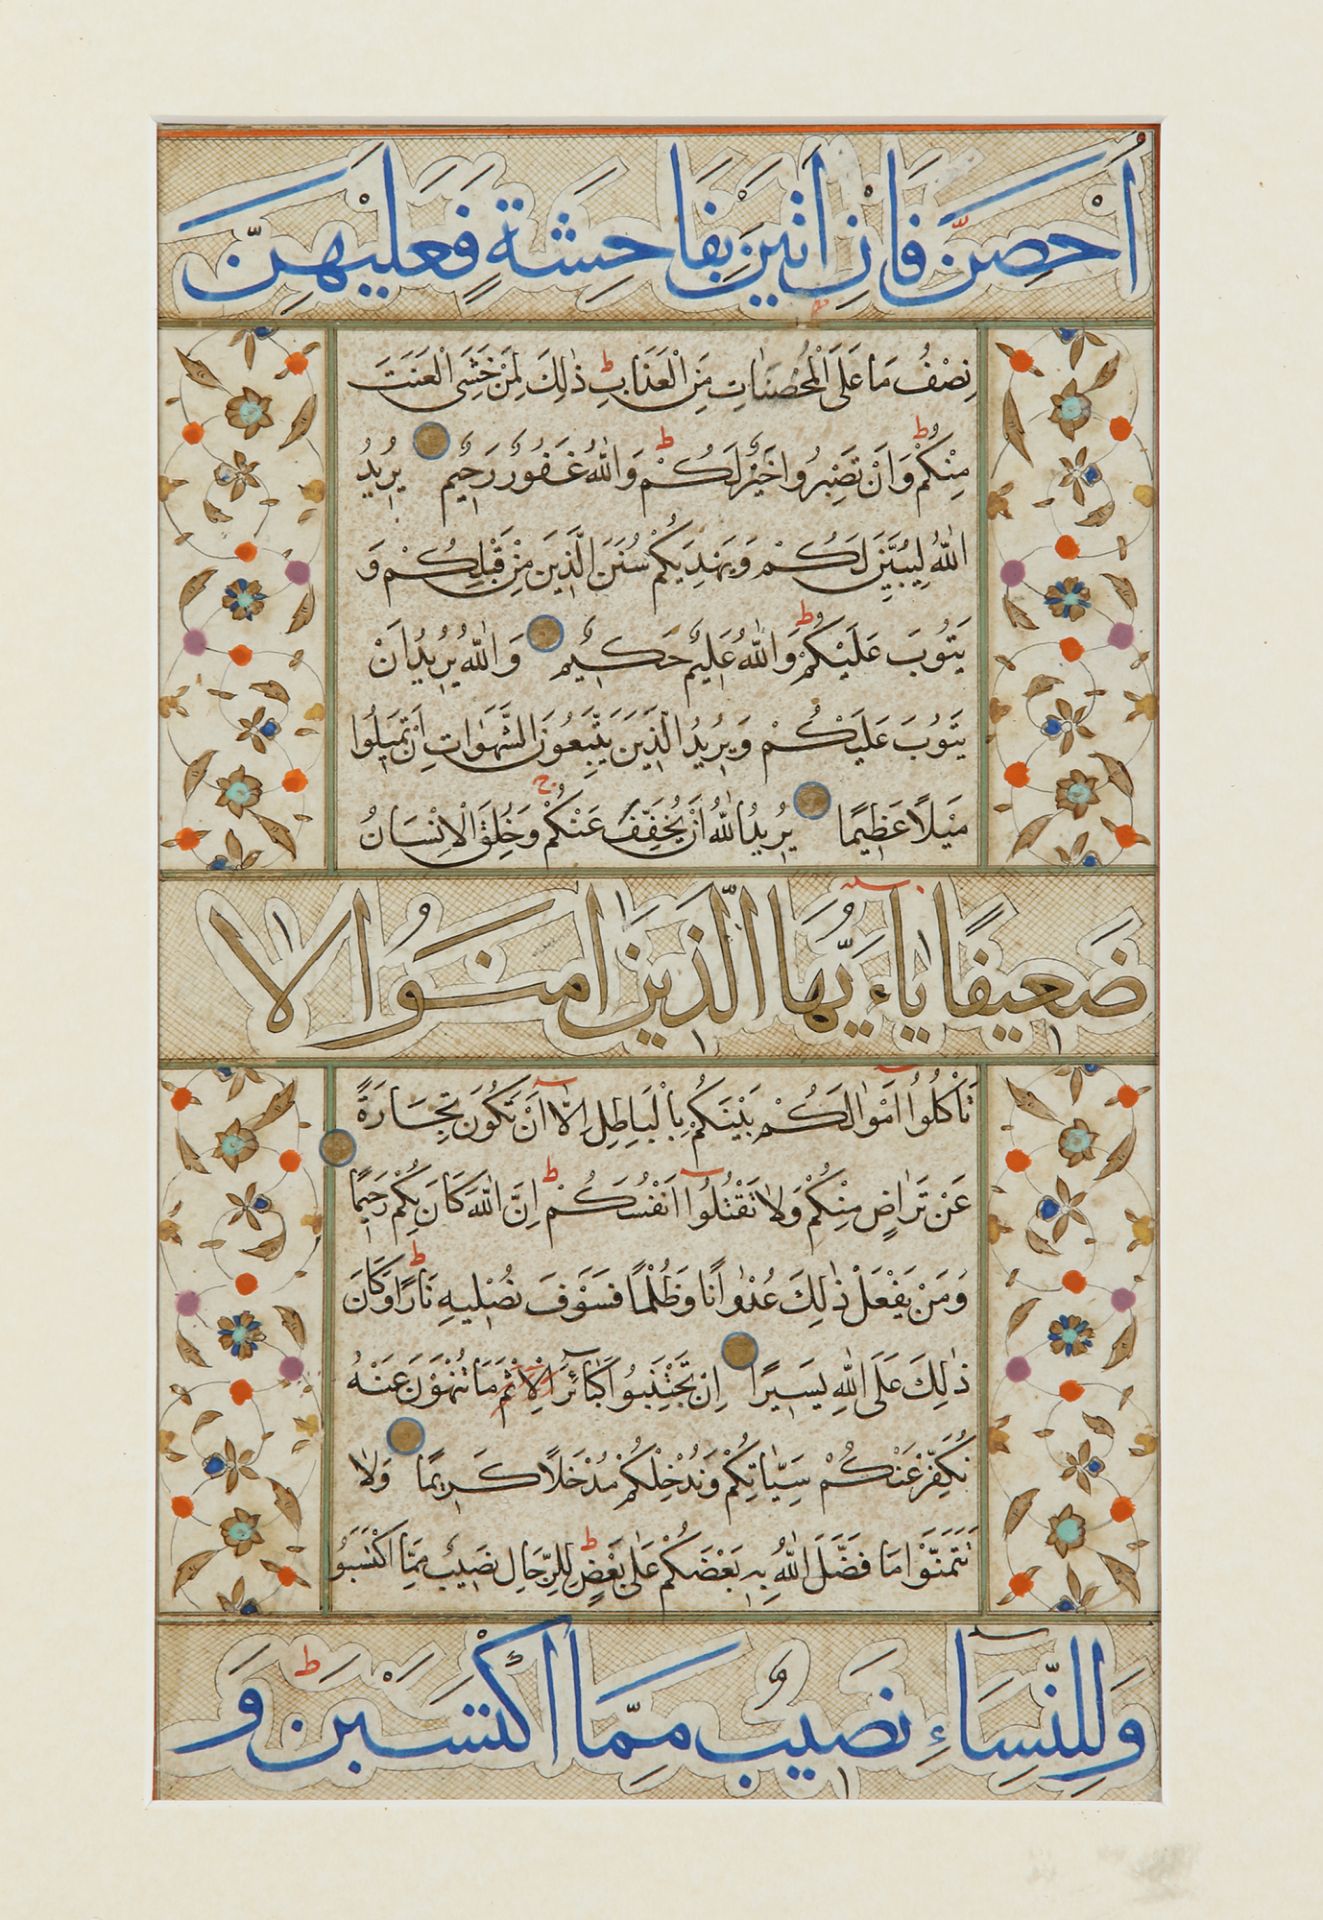 اُحْصِنَّ فَاِنْ اَتَيْنَ بِفَاحِشَةٍ فَعَلَيْهِنَّ
نِصْفُ مَا عَلَى الْمُحْصَنَاتِ مِنَ الْعَذَابِ ط ذٰلِكَ لِمَنْ خَشِىَ الْعَنَتَ
مِنْكُمْ ط وَاَنْ تَصْبِرُوا خَيْرٌ لَكُمْ ط وَاللّٰهُ غَفُورٌ رَحِيمٌ يُرِيدُ
اللّٰهُ لِيُبَيِّنَ لَكُمْ وَيَهْدِيَكُمْ سُنَنَ الَّذِينَ مِنْ قَبْلِكُمْ وَ
يَتُوبَ عَلَيْكُمْ ط وَاللّٰهُ عَلِيمٌ حَكِيمٌ وَاللّٰهُ يُرِيدُ اَنْ
يَتُوبَ عَلَيْكُمْ وَيُرِيدُ الَّذِينَ يَتَّبِعُونَ الشَّهَوَاتِ اَنْ تَمِيلُوا
مَيْلًا عَظِيمًا يُرِيدُ اللّٰهُ اَنْ يُخَفِّفَ عَنْكُمْ ج وَخُلِقَ الْاِنْسَانُ
ضَعِيفًا يَاءَيُّهَا الَّذِينَ اٰمَنُوا لَا
تَأْكُلُوا اَمْوَالَكُمْ بَيْنَكُمْ بِالْبَاطِلِ اِلَّا اَنْ تَكُونَ تِجَارَةً
عَنْ تَرَاضٍ مِنْكُمْ وَلَا تَقْتُلُوا اَنْفُسَكُمْ ط اِنَّ اللّٰهَ كَانَ بِكُمْ رَحِيمًا
وَمَنْ يَفْعَلْ ذٰلِكَ عُدْوَانًا وَظُلْمًا فَسَوْفَ نُصْلِيهِ نَارًا ط وَكَانَ
ذٰلِكَ عَلَى اللّٰهِ يَسِيرًا اِنْ تَجْتَنِبُوا كَبَائِرَ الْاِثْمِ مَا تُنْهَوْنَ عَنْهُ
نُكَفِّرْ عَنْكُمْ سَيِّئَاتِكُمْ وَنُدْخِلْكُمْ مُدْخَلًا كَرِيمًا وَلَا
تَتَمَنَّوْا مَا فَضَّلَ اللّٰهُ بِهِ بَعْضَكُمْ عَلَى بَعْضٍ ط لِلرِّجَالِ نَصِيبٌ مِمَّا اكْتَسَبُوا
وَلِلنِّسَاءِ نَصِيبٌ مِمَّا اكْتَسَبْنَ ط وَ